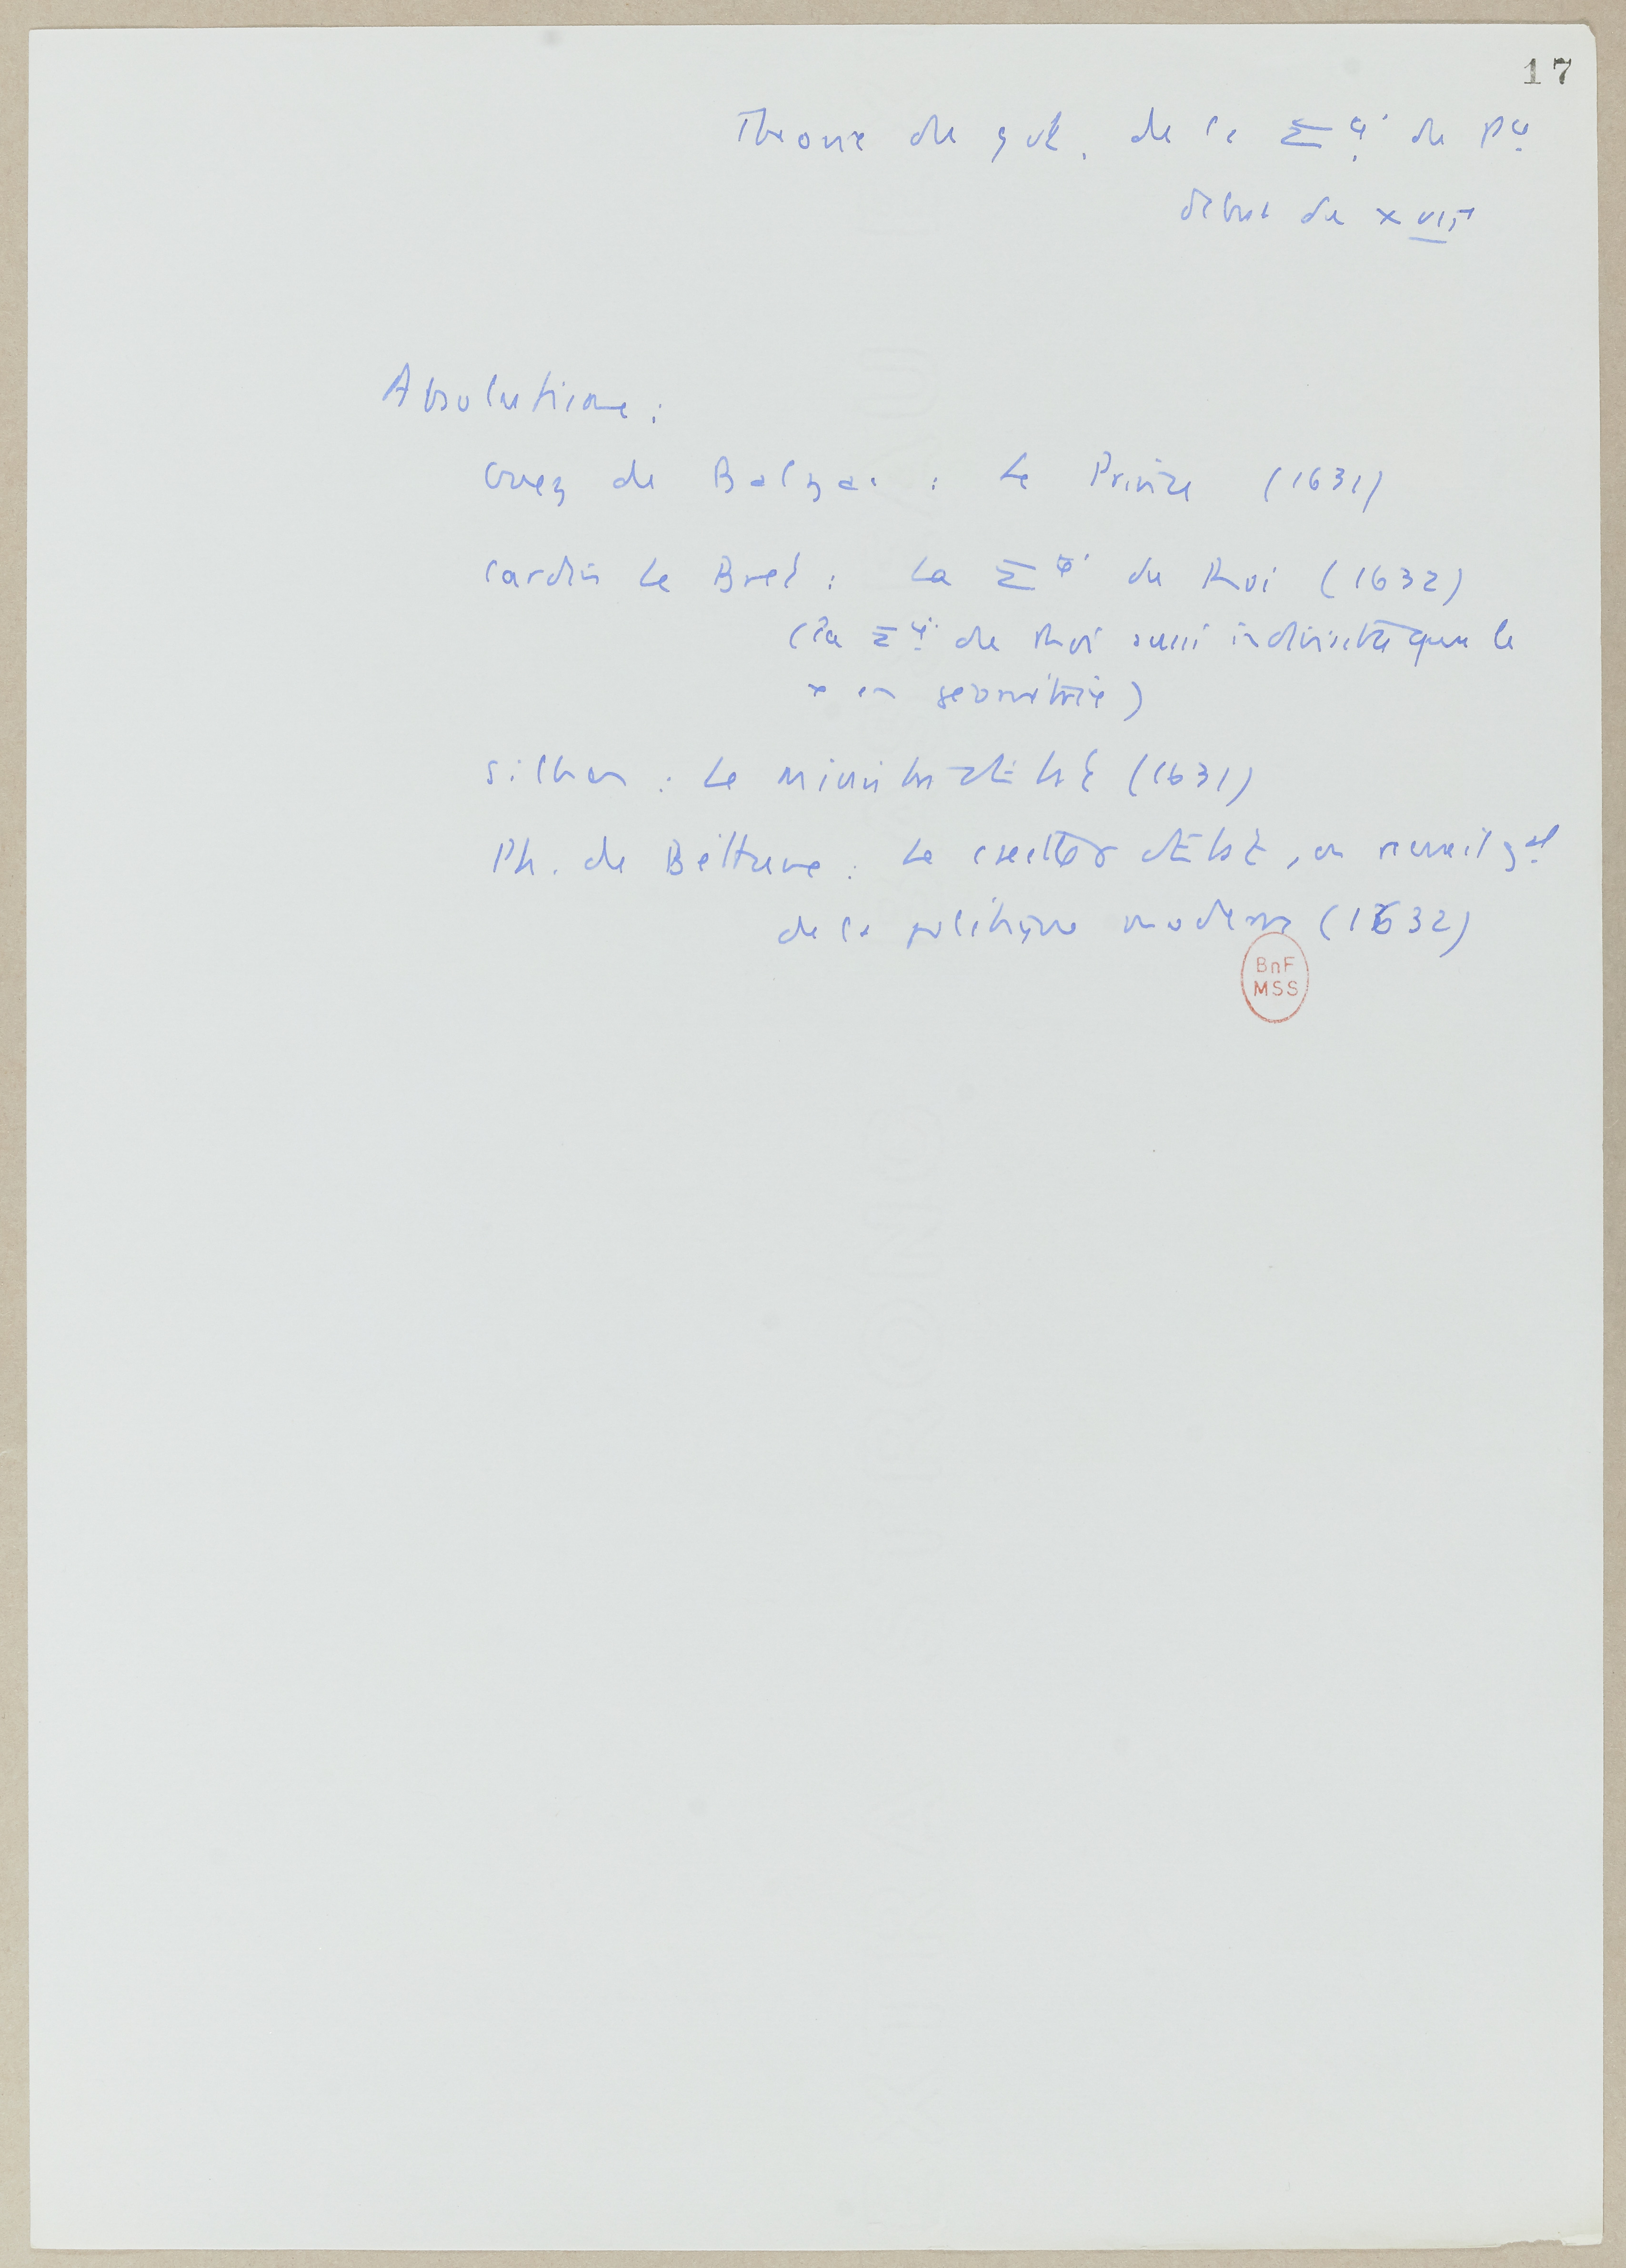 17
Theorie du gvt. de la Σ té du pr
début du XVIIe
Absolutisme :
Guez de Balzac : Le Prince (1631)
Cardin Le Bret : La Σ té du Roi (1632)
(la Σ té du Roi aussi indivisible que le
• en géométrie)
Silhon : Le ministre d'État (1631)
Ph. de Béthune : Le conseiller d'État, ou recueil gal
de la politique moderne (1632)
BnF
MSS